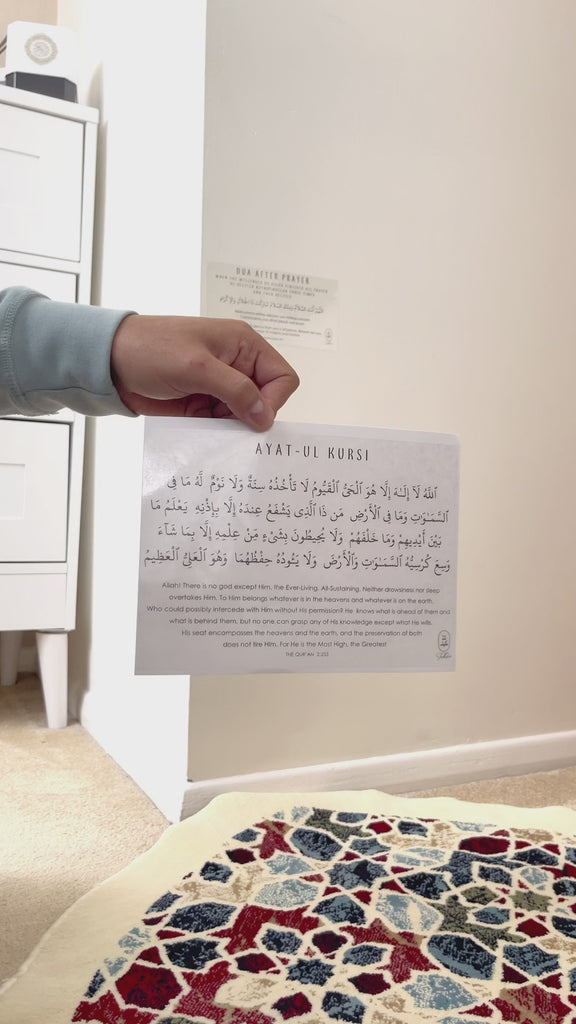 DUA AFTER PRAYER
AYAT-UL KURSI
ٱللَّهُ لَآ إِلَـٰهَ إِلَّا هُوَ ٱلْحَىُّ ٱلْقَيُّومُ لَا تَأْخُذُهُ سِنَةٌ وَلَا نَوْمٌ لَّهُ مَا فِى
ٱلسَّمَـٰوَٰتِ وَمَا فِى ٱلْأَرْضِ مَن ذَا ٱلَّذِى يَشْفَعُ عِندَهُ إِلَّا بِإِذْنِهِ يَعْلَمُ مَا
بَيْنَ أَيْدِيهِمْ وَمَا خَلْفَهُمْ وَلَا يُحِيطُونَ بِشَىْءٍ مِّنْ عِلْمِهِ إِلَّا بِمَا شَآءَ
وَسِعَ كُرْسِيُّهُ ٱلسَّمَـٰوَٰتِ وَٱلْأَرْضَ وَلَا يَـُٔودُهُ حِفْظُهُمَا وَهُوَ ٱلْعَلِىُّ ٱلْعَظِيمُ
Allah! There is no god except Him, the Ever-Living, All-Sustaining. Neither drowsiness nor sleep
overtakes Him. To Him belongs whatever is in the heavens and whatever is on the earth.
Who could possibly intercede with Him without His permission? He knows what is ahead of them and
what is behind them, but no one can grasp any of His knowledge except what He wills.
His seat encompasses the heavens and the earth, and the preservation of both
does not tire Him. For He is the Most High, the Greatest
THE QUR'AN 2:255